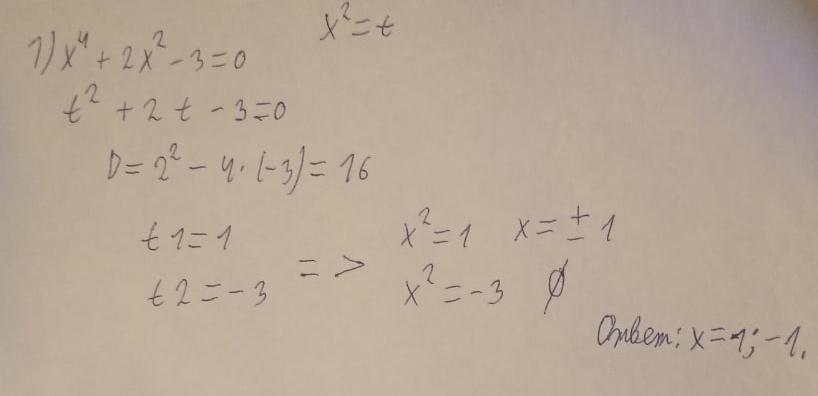 x² = t
1) x⁴ + 2x² - 3 = 0
t² + 2t - 3 = 0
D = 2² - 4·(-3) = 16
t1 = 1 x² = 1 x = ± 1
=>
t2 = -3 x² = -3 ∅
Ответ: x = 1; -1.